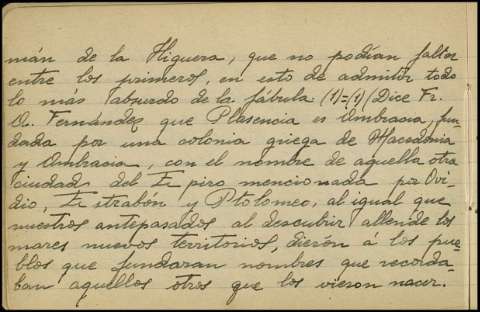 mán de la Higuera, que no podían faltar
entre los primeros, en esto de admitir todo
lo más absurdo de la fábula (1)=(1) (Dice Fr.
A. Fernández que Plasencia es Ambracia, fun-
dada por una colonia griega de Macedonia
y Ambracia, con el nombre de aquella otra
ciudad del Epiro mencionada por Ovi-
dio, Estrabón y Ptolomeo, al igual que
nuestros antepasados al descubrir allende los
mares nuevos territorios, dieron á los pue-
blos que fundaran nombres que recorda-
ban aquellos otros que los vieron nacer.